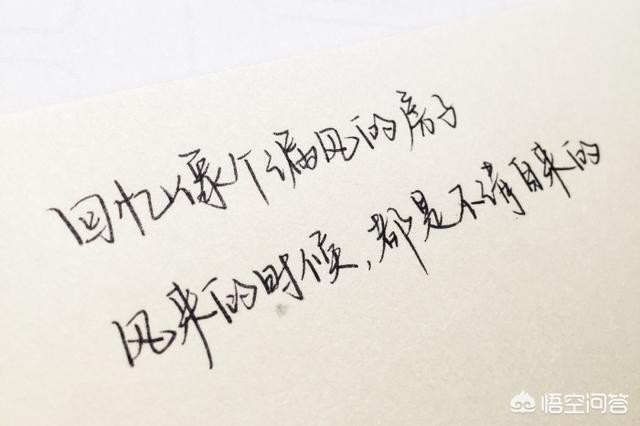 回忆像个漏风的房子
风来的时候，都是不请自来的
悟空问答